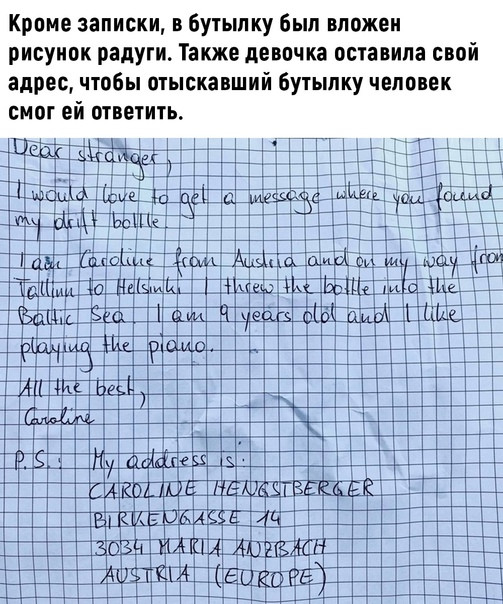 Кроме записки, в бутылку был вложен
рисунок радуги. Также девочка оставила свой
адрес, чтобы отыскавший бутылку человек
смог ей ответить.
Dear stranger,
I would love to get a message where you found
my drift bottle.
I am Caroline from Austria and on my way from
Tallinn to Helsinki I threw the bottle into the
Baltic Sea. I am 9 years old and I like
playing the piano.
All the best,
Caroline
P.S.: My address is:
CAROLINE HENGSTBERGER
BIRKENGASSE 14
3034 MARIA ANZBACH
AUSTRIA (EUROPE)